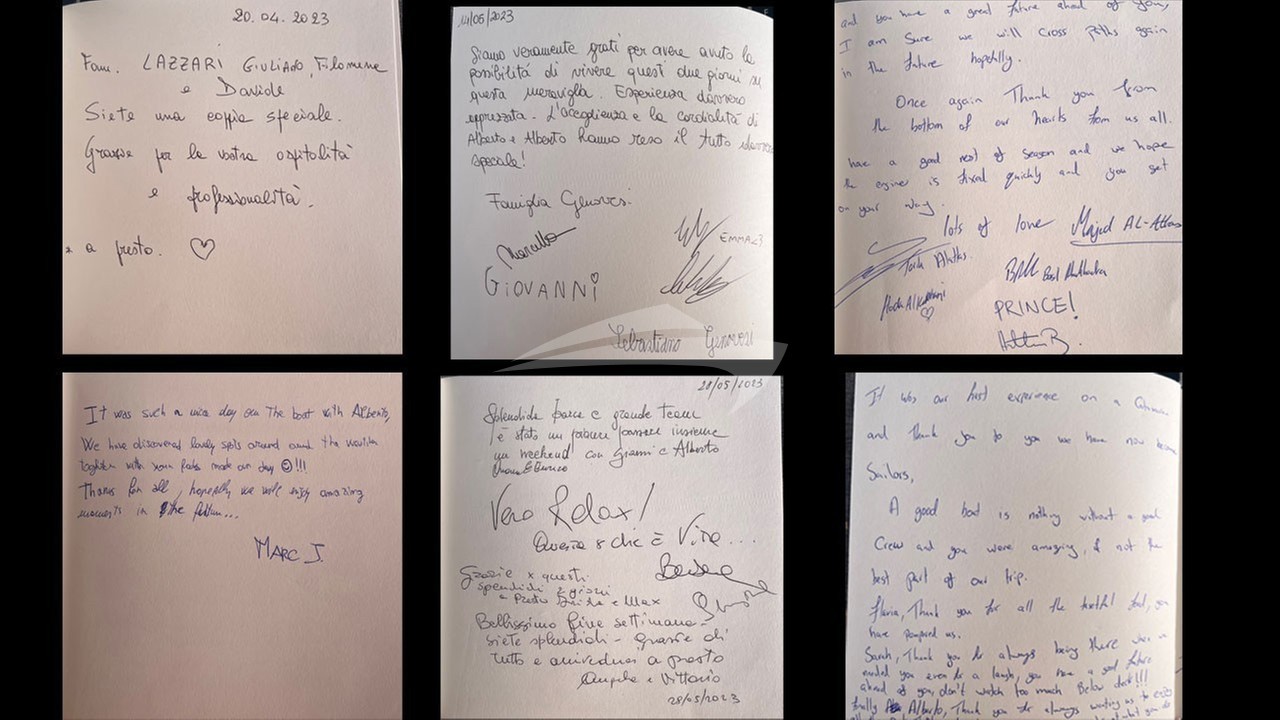 20.04.2023
Fam. LAZZARI GIULIANO, Filomena
e Davide
Siete una coppia speciale.
Grazie per la vostra ospitalità
e professionalità.
e a presto. ♡
11/05/2023
Siamo veramente grati per avere avuto la
possibilità di vivere questi due giorni su
questa meraviglia. Esperienza davvero
apprezzata. L'accoglienza e la cordialità di
Alberto e Alberto hanno reso il tutto davvero
speciale!
Famiglia Genovesi.
Marcello
EMMA <3
GIOVANNI
Sebastiano Genovesi
and you have a great future ahead of you,
I am Sure we will cross paths again
in the future hopefully.
Once again Thank you from
the bottom of our hearts from us all.
have a good rest of season and we hope
the engine is fixed quickly and you get
on your way.
lots of love Majed AL-Attas
PRINCE!
It was such a nice day on the boat with Alberto,
We have discovered lovely spots around and the
with your made our day ☺!!!
Thanks for all, hopefully we will enjoy amazing
moments in the future...
MARC J.
28/05/2023
Splendida barca e grande team
è stato un piacere passare insieme
un weekend con Gianni e Alberto
Vero Relax!
Questa s che è Vita...
Grazie x questi
splendidi 2 giorni
a presto e Max
Bellissimo fine settimana-
siete splendidi - grazie di
tutto e arrivederci a presto
Angela e Vittorio
28/05/2023
It was our first experience on a Catamaran
and thank you to you we have now become
Sailors,
A good boat is nothing without a good
Crew and you were amazing, if not the
best part of our trip.
Flavia, Thank you for all the food, you
have pampered us.
Sarah, Thank you for always being there when we
needed you even for a laugh, you have a good future
ahead of you, don't watch too much Below deck!!!
finally Alberto, Thank you for always